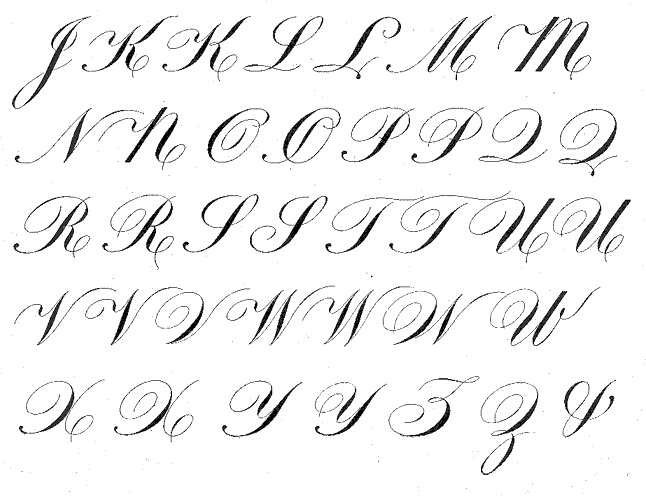 J K K L L M M
N N O O P P Q Q
R R S S T T U U
V V V W W W W
X X Y Y Z Z &